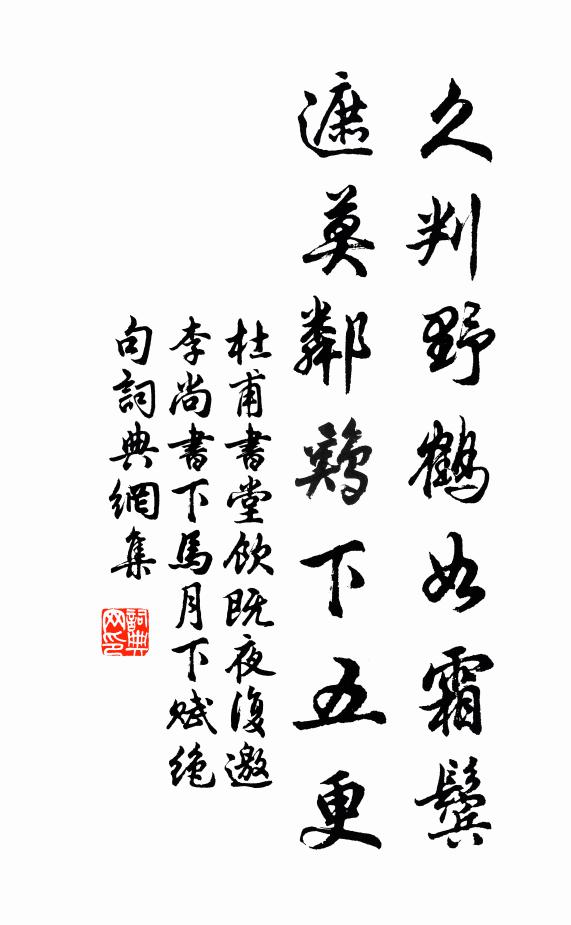 久判野鶴如霜鬢
遮莫鄰鷄下五更
杜甫書堂飲既夜復邀
李尚書下馬月下賦絶
句詞典網集
詞典
网印